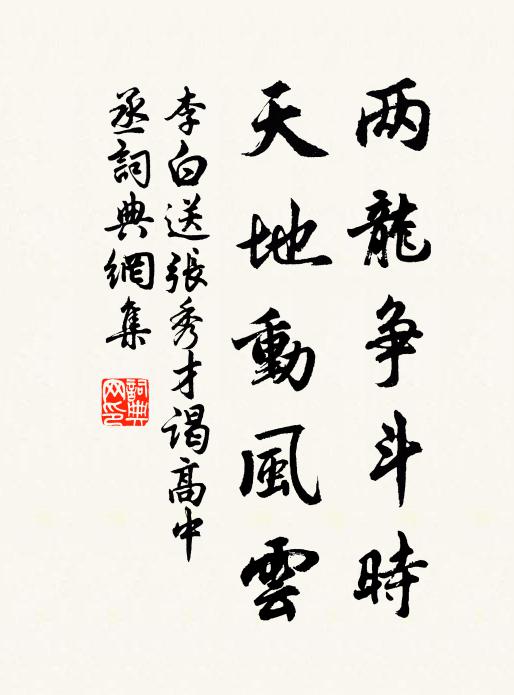 两龍争斗時
天地動風雲
李白送張秀才謁高中
丞詞典網集
詞典
网印